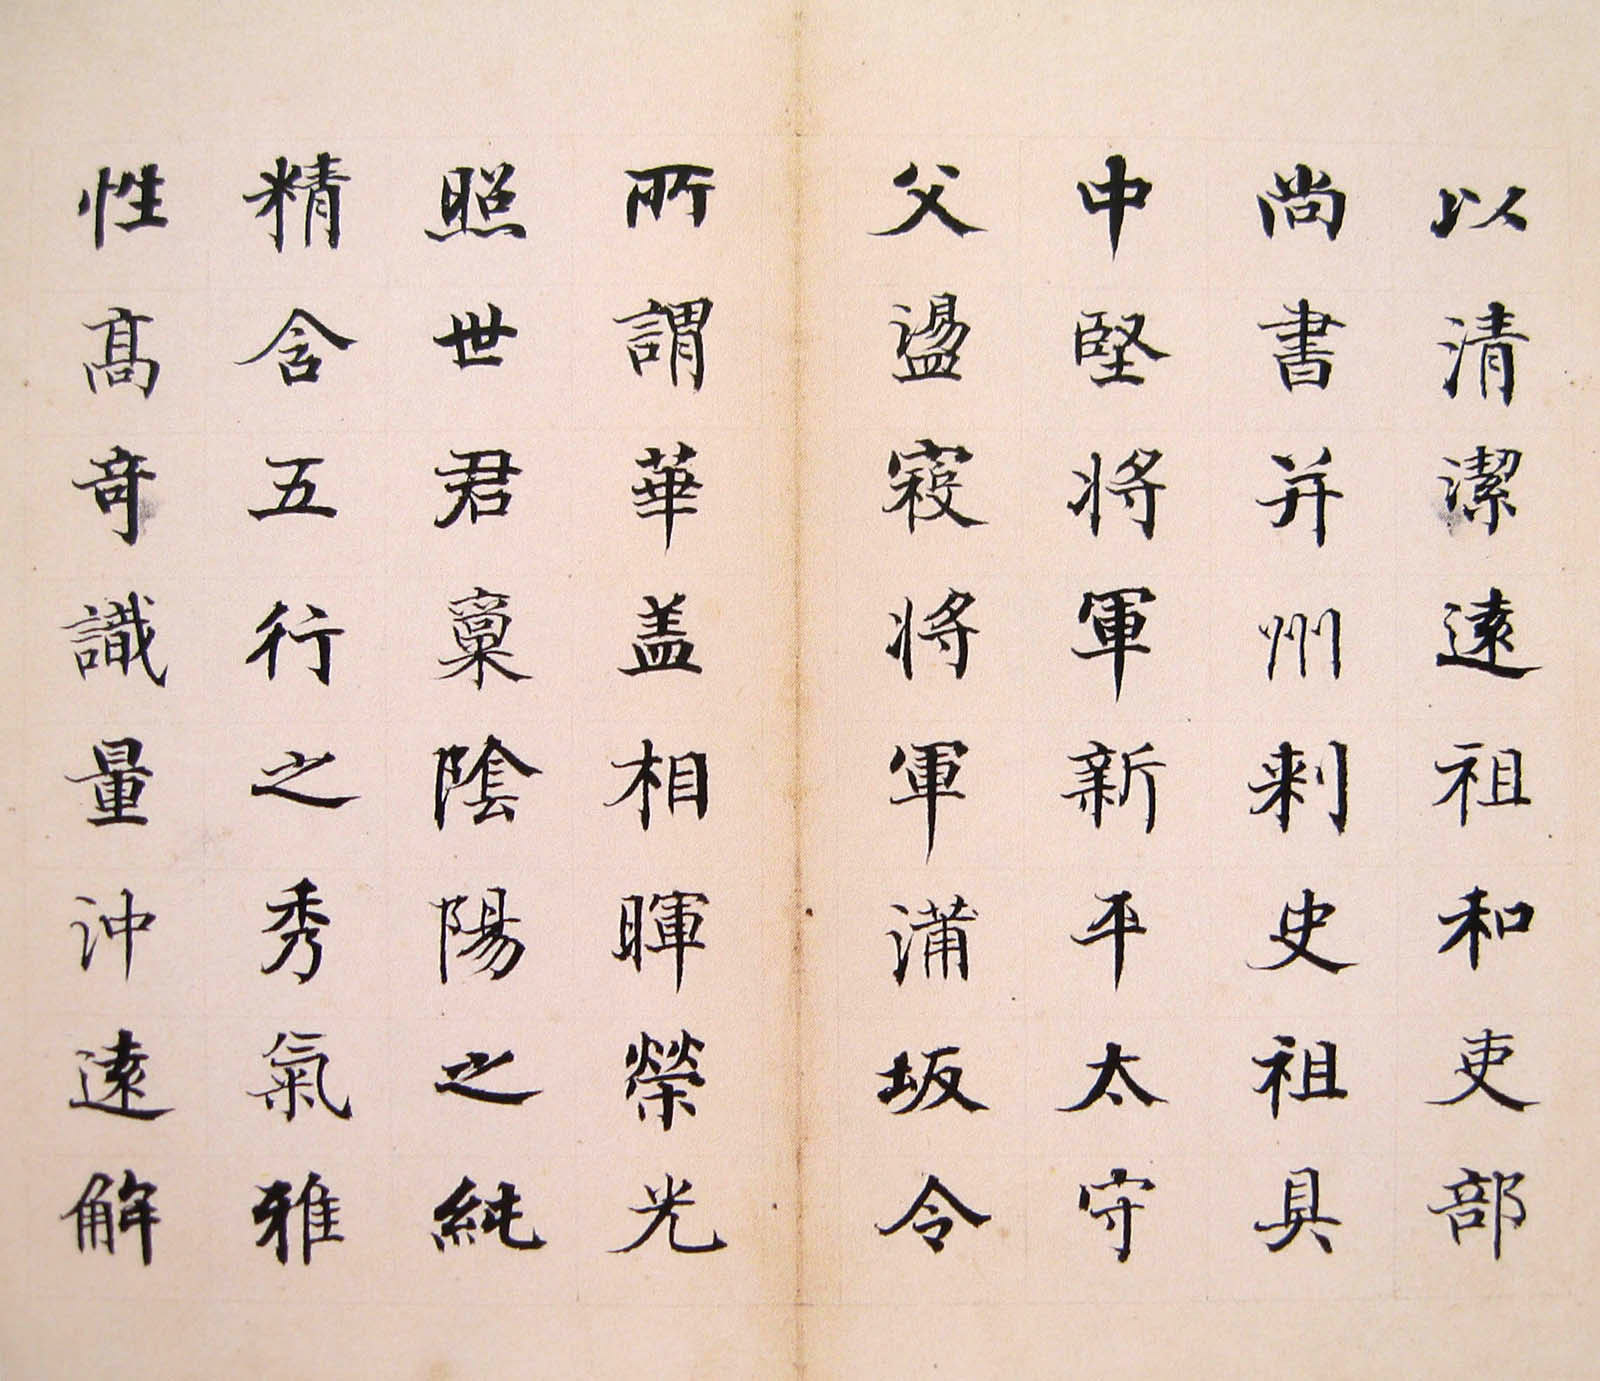 以清潔遠祖和吏部
尚書并州刺史祖具
中堅將軍新平太守
父盪寇將軍蒲坂令
所謂華蓋相暉榮光
照世君稟陰陽之純
精含五行之秀氣雅
性高奇識量沖遠解